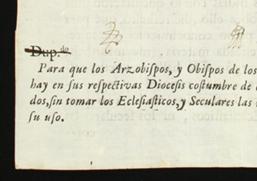 Dup.do
Para que los Arzobispos, y Obispos de los
hay en sus respectivas Diocesis costumbre de
dos, sin tomar los Eclesiasticos, y Seculares las
su uso.